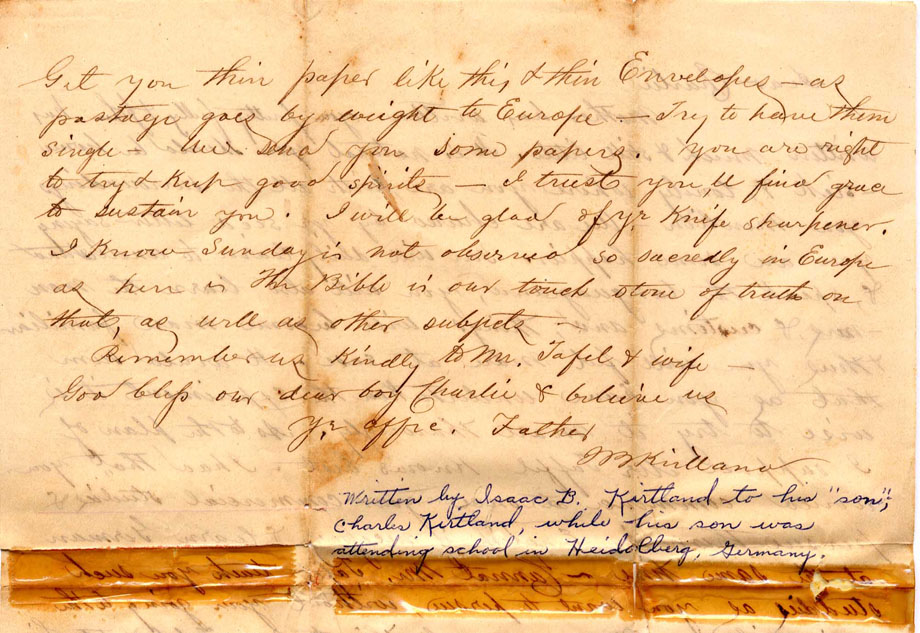 Get you thin paper like this, & thin Envelopes - as
postage goes by weight to Europe - Try to have them
single - We send you some papers. You are right
to try & keep good spirits - I trust you'll find grace
to sustain you. I will be glad of yr. Knife sharpener.
I Know Sunday is not observed so sacredly in Europe
as here & The Bible is our touch stone of truth on
that, as well as other subjects -
Remember us Kindly to Mr. Tafel & wife -
God bless our dear boy Charlie & believe us
Yr. affec. Father
IB Kirtland
Written by Isaac B. Kirtland to his "son",
Charles Kirtland, while his son was
attending school in Heidolberg, Germany.